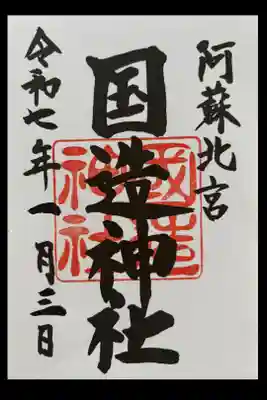 阿蘇北宮
国造神社
國造神社
令和七年一月三日